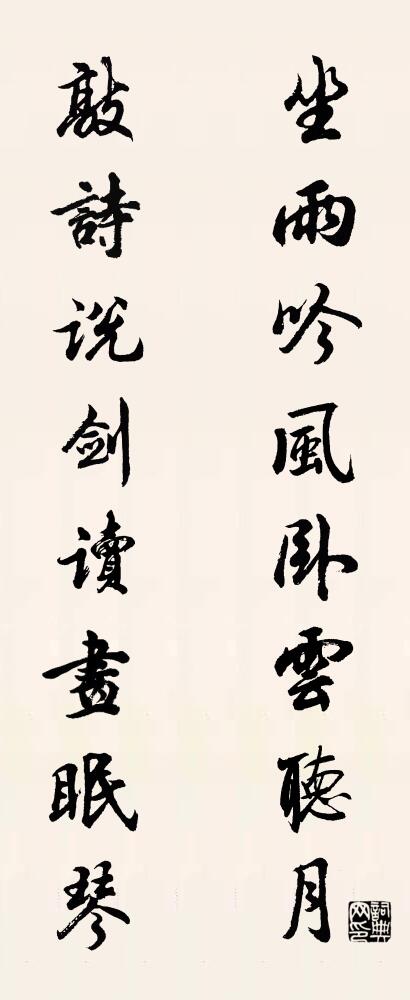 坐雨吟風卧雲聽月
敲詩說劍讀畫眠琴
詞典网印